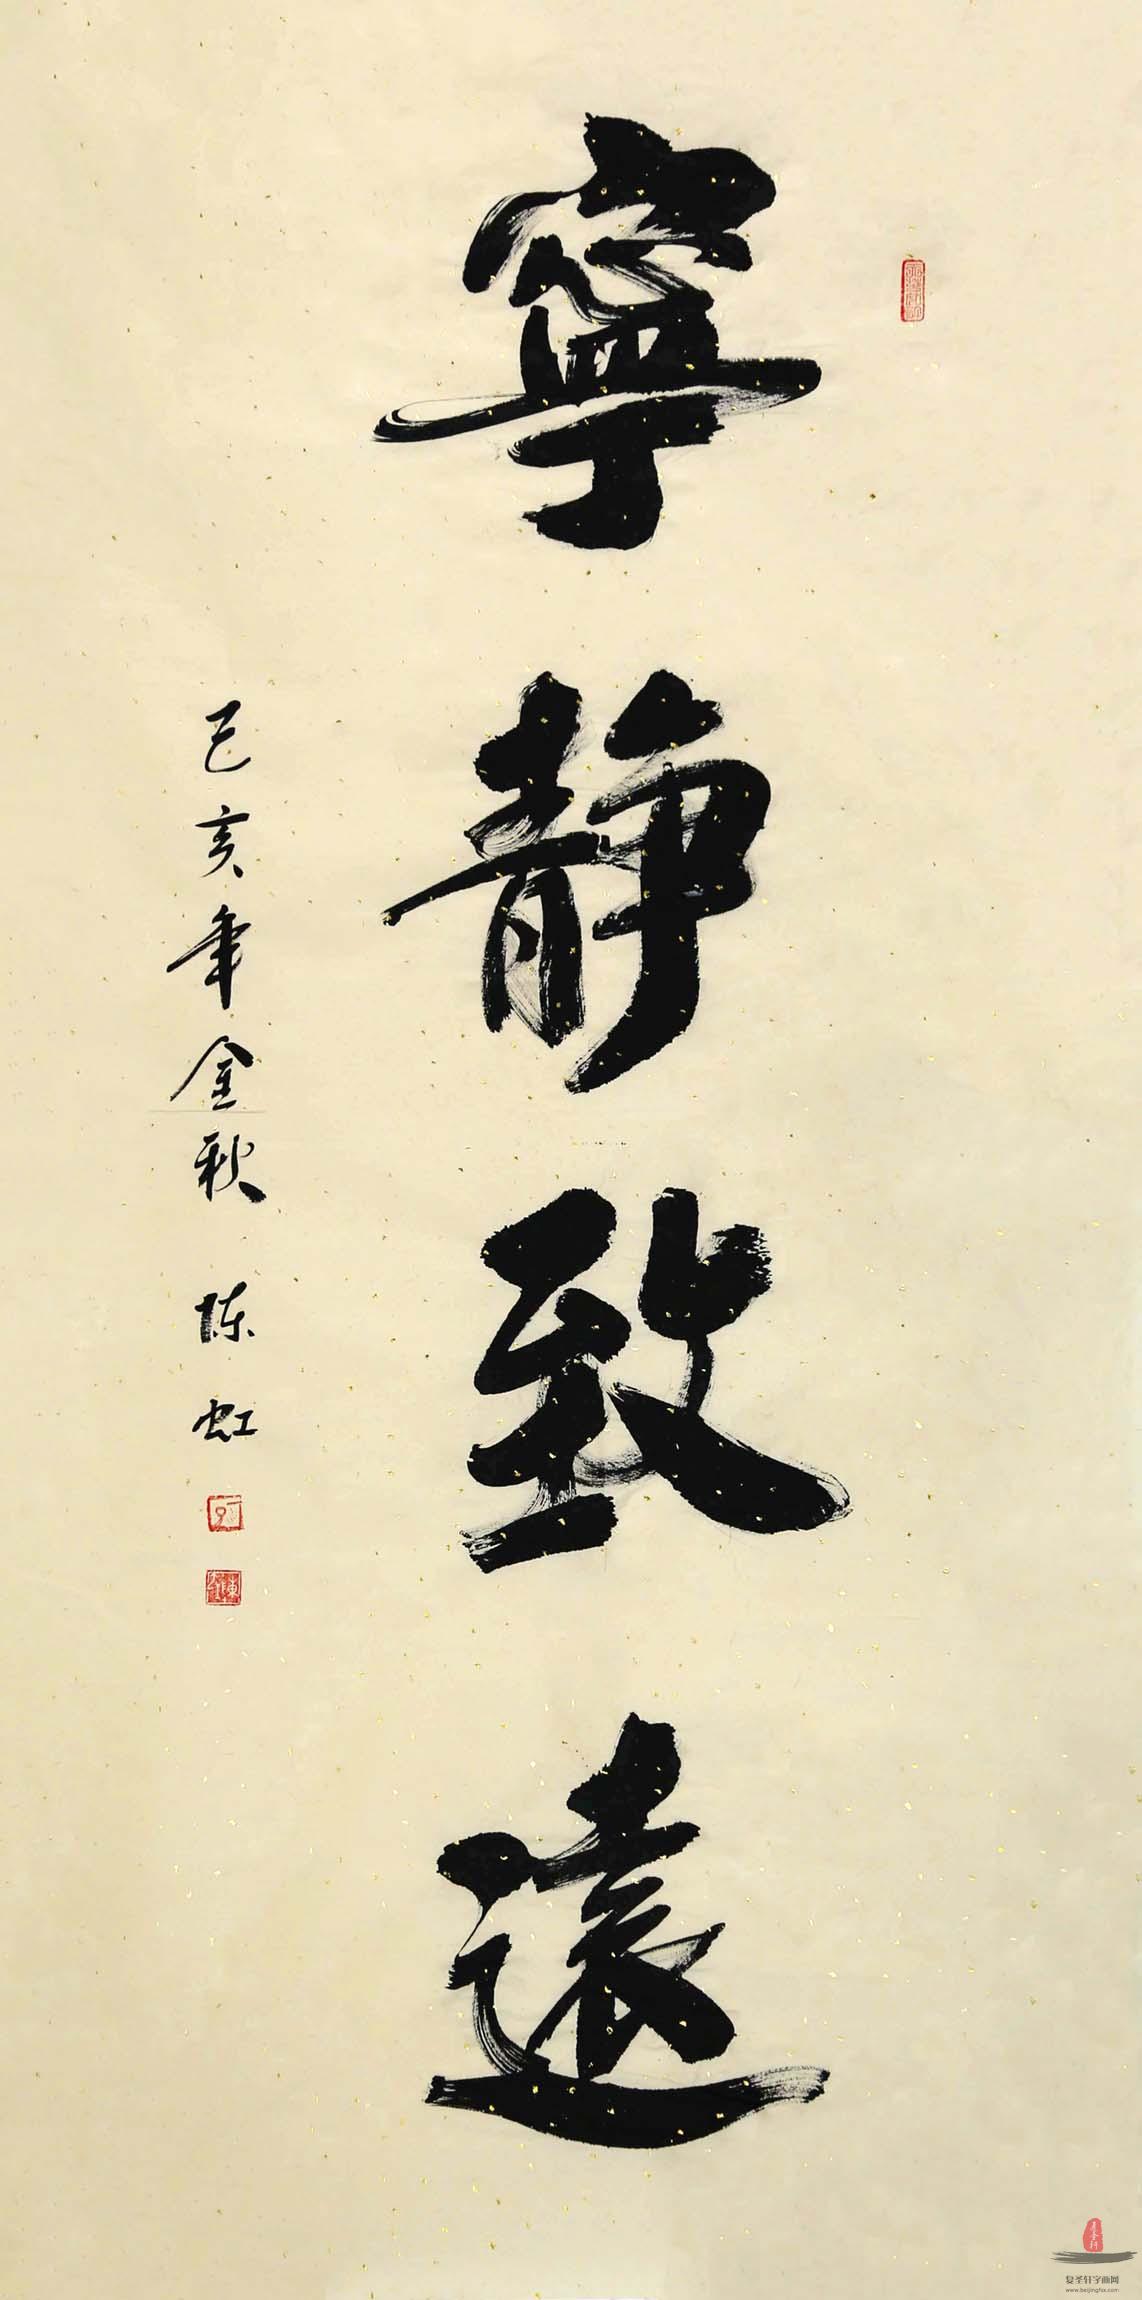 寧靜致遠
己亥年金秋 陈虹
复圣轩字画网
www.beijingfsx.com